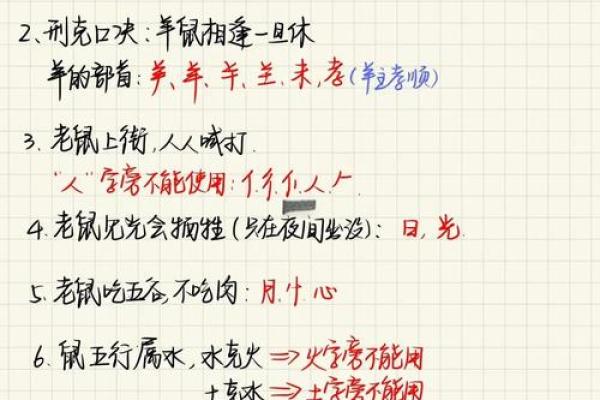 2、刑克口决：羊鼠相逢一旦休
羊的部首：𦍌、羊、𦍋、𦍌、未，孝(羊主孝顺)
3. 老鼠上街，人人喊打.
"人"字旁不能使用：亻.彳.亻.人.𠂉.
4.老鼠见光会牺牲(只在夜间出没)：日，光.
5. 老鼠吃五谷，不吃肉：月.忄.心
6. 鼠五行属水，水克火⇒火字旁不能用
土克水⇒土字旁不能用